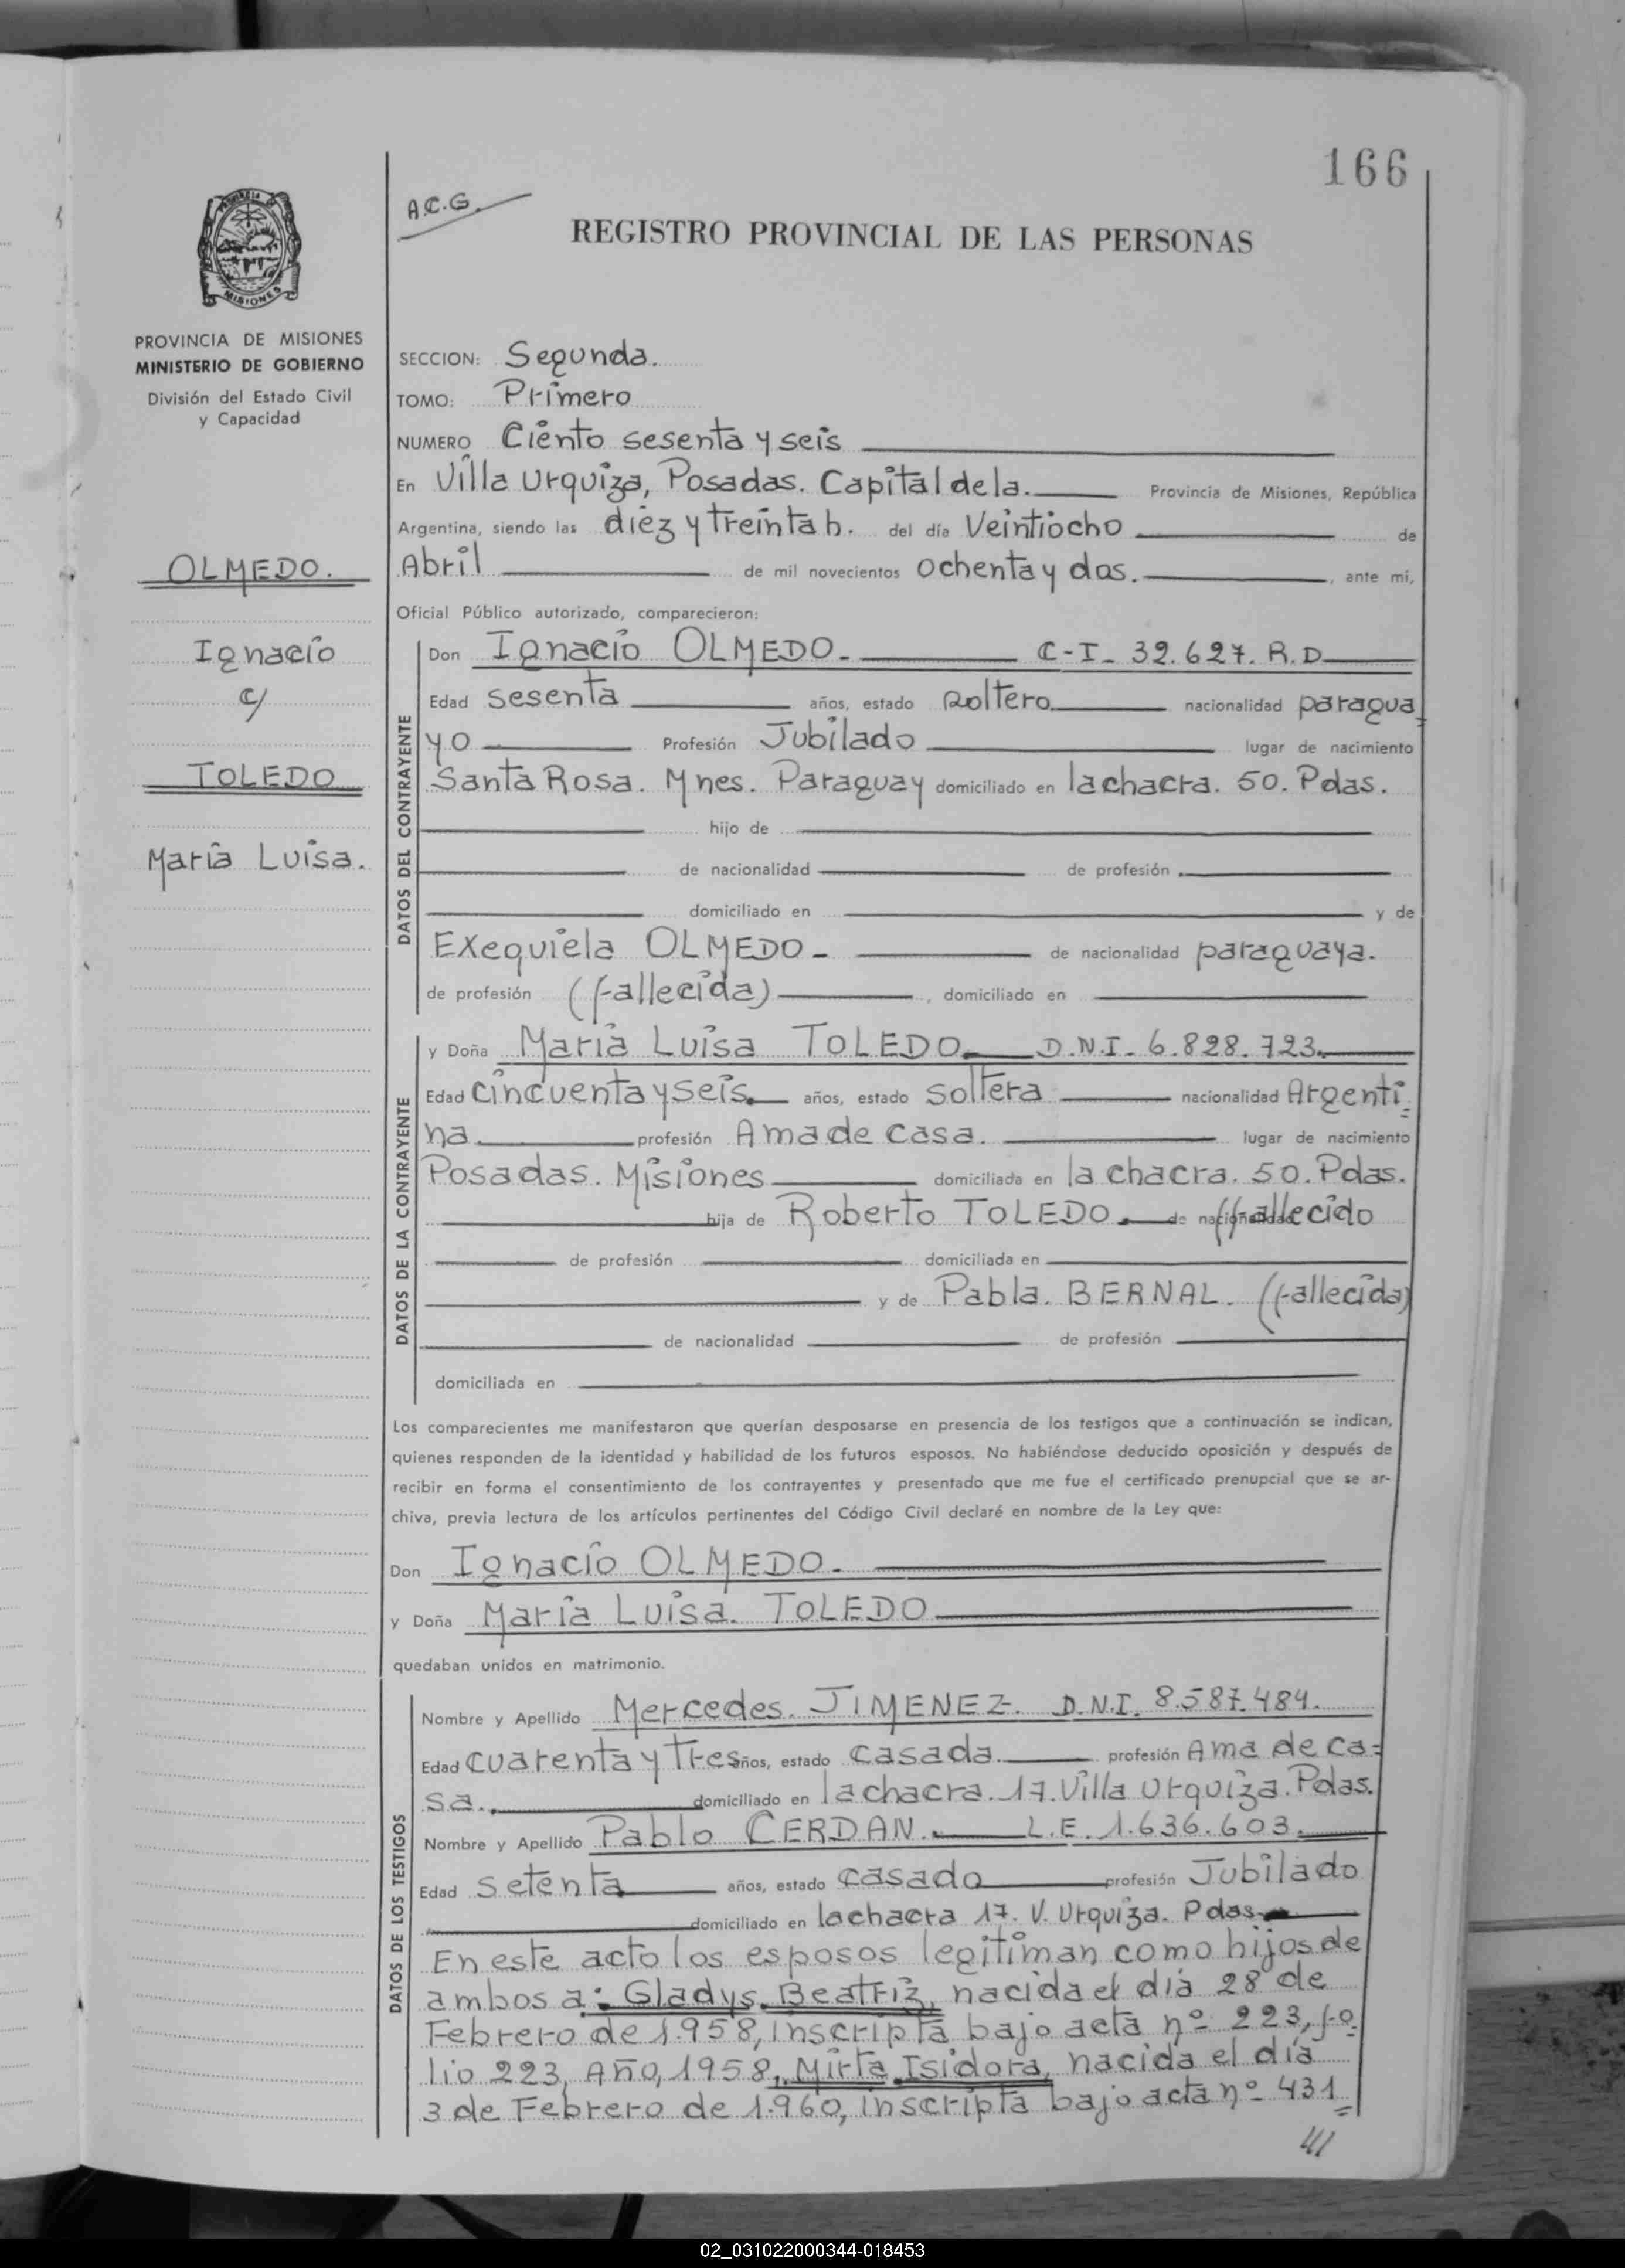 166
A.C.G.
REGISTRO PROVINCIAL DE LAS PERSONAS
MISIONES
PROVINCIA DE MISIONES
MINISTERIO DE GOBIERNO
División del Estado Civil
y Capacidad
OLMEDO.
Ignacio
c/
TOLEDO
María Luisa.
SECCION: Segunda.
TOMO: Primero
NUMERO Ciento sesenta y seis
En Villa Urquiza, Posadas. Capital de la. Provincia de Misiones, República
Argentina, siendo las diez y treinta h. del día Veintiocho de
Abril de mil novecientos ochenta y dos. , ante mi,
Oficial Público autorizado, comparecieron:
DATOS DEL CONTRAYENTE
Don Ignacio OLMEDO.- C-I- 32.627. R.D
Edad sesenta años, estado soltero nacionalidad paragua
yo Profesión Jubilado lugar de nacimiento
Santa Rosa. Mnes. Paraguay domiciliado en la chacra. 50. Pdas.
hijo de
de nacionalidad de profesión
domiciliado en y de
Exequiela OLMEDO - de nacionalidad paraguaya.
de profesión (fallecida) , domiciliado en
DATOS DE LA CONTRAYENTE
y Doña María Luisa TOLEDO. D.N.I. 6.828.723.
Edad cincuenta y seis. años, estado soltera nacionalidad Argenti=
na. profesión Ama de casa. lugar de nacimiento
Posadas. Misiones domiciliada en la chacra. 50. Pdas.
hija de Roberto TOLEDO. de nacionalidad (fallecido
de profesión domiciliada en
y de Pabla. BERNAL. (fallecida)
de nacionalidad de profesión
domiciliada en
Los comparecientes me manifestaron que querían desposarse en presencia de los testigos que a continuación se indican,
quienes responden de la identidad y habilidad de los futuros esposos. No habiéndose deducido oposición y después de
recibir en forma el consentimiento de los contrayentes y presentado que me fue el certificado prenupcial que se ar-
chiva, previa lectura de los artículos pertinentes del Código Civil declaré en nombre de la Ley que:
Don Ignacio OLMEDO.
y Doña María Luisa. TOLEDO
quedaban unidos en matrimonio.
DATOS DE LOS TESTIGOS
Nombre y Apellido Mercedes. JIMENEZ. D.N.I. 8.587.484.
Edad cuarenta y tres años, estado casada. profesión Ama de ca=
sa. domiciliado en la chacra. 17. Villa Urquiza. Pdas.
Nombre y Apellido Pablo CERDAN. L.E. 1.636.603.
Edad setenta años, estado casado profesión Jubilado
domiciliado en la chacra 17. V. Urquiza. Pdas.
En este acto los esposos legitiman como hijos de
ambos a: Gladys. Beatriz, nacida el día 28 de
Febrero de 1.958, inscripta bajo acta nº 223, fo
lio 223, Año, 1958, Mirta Isidora, nacida el día
3 de Febrero de 1.960, inscripta bajo acta nº 431
02_031022000344-018453